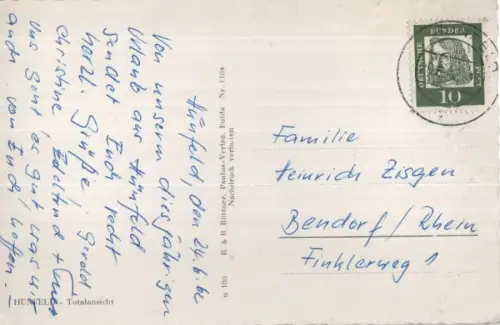 Hünfeld, den 24.6.62
Von unserm diesjährigen
Urlaub aus Hünfeld
sendet Euch recht
herzl. Grüße!
Gerold
Christine,
Uns geht es gut, was wir
auch von Euch hoffen.
HÜNFELD - Totalansicht
n 100 B. & B. Büttner, Paulus-Verlag, Fulda Nr. 1104
Nachdruck verboten
DEUTSCHE BUNDESPOST
10
Familie
Heinrich Zisgen
Bendorf/Rhein
Finklerweg 1